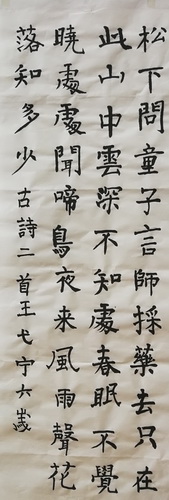 松下問童子言師採藥去只在
此山中雲深不知處春眠不覺
曉處處聞啼鳥夜来風雨聲花
落知多少古詩二首王弋宁六歲